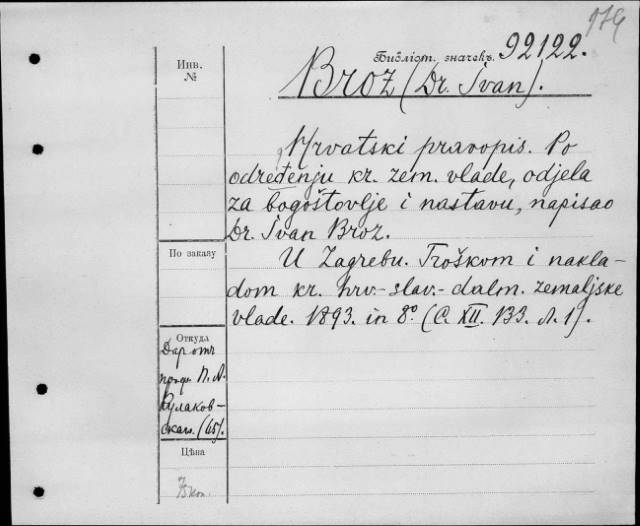 974
Библіот. значекъ 92122.
Инв.
№
Broz (Dr. Ivan).
Hrvatski pravopis. Po
određenju kr. zem. vlade, odjela
za bogoštovlje i nastavu, napisao
Dr. Ivan Broz.
По заказу
U Zagrebu. Troškom i nakla-
dom kr. hrv.- slav.- dalm. zemaljske
vlade. 1893. in 8º (C. XII. 133. Л. 1).
Откуда
Дар отъ
проф. П. А.
Кулаков-
скаго. (65).
Цѣна
75 коп.